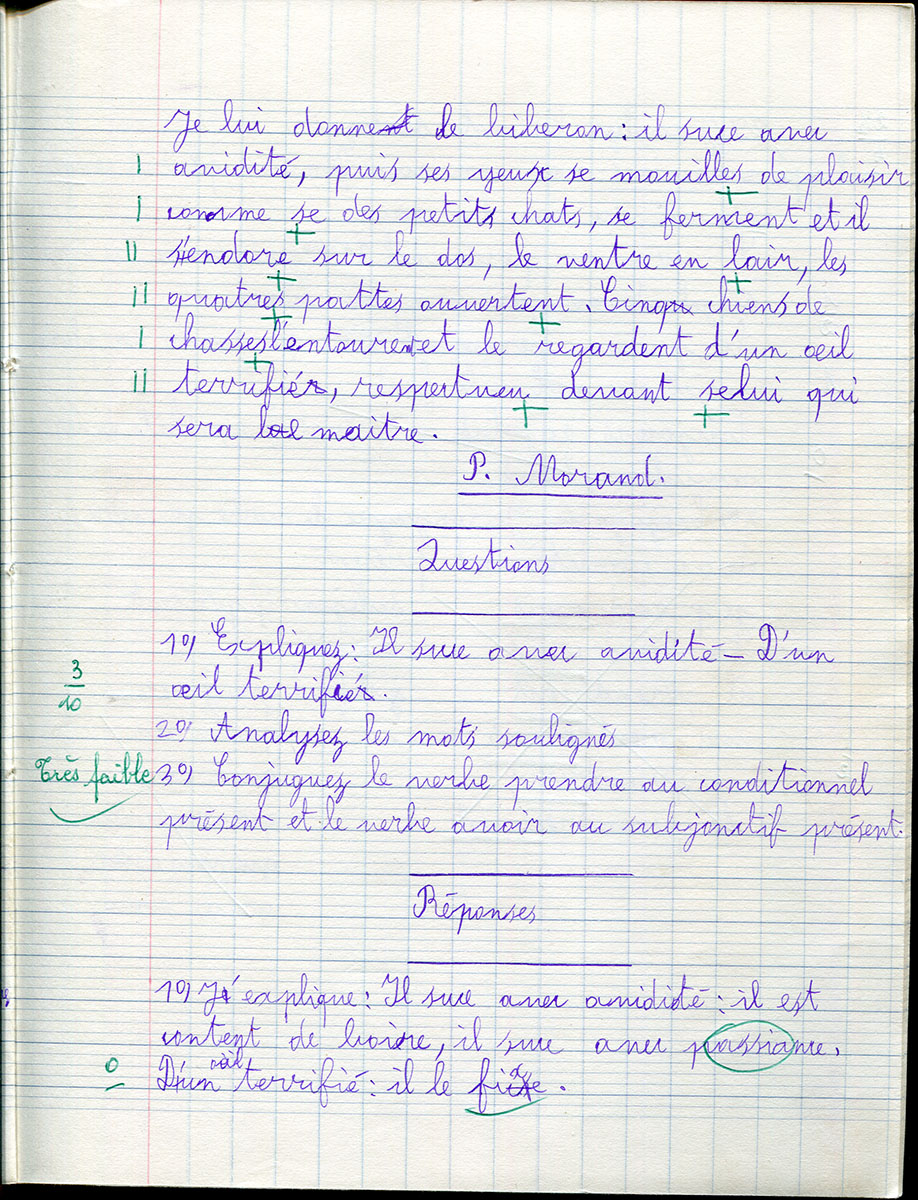 Je lui donnent le biberon : il suce avec
I avidité, puis ses yeux se mouilles de plaisir
I comme se des petits chats, se ferment et il
II s'endore sur le dos, le ventre en lair, les
II quatres pattes ouvertent. Cinq chiens de
I chasses l'entourent et le regardent d'un oeil
II terrifiér, respectueu devant selui qui
sera le maitre.
P. Morand.
Questions
1°) Expliquez : Il suce avec avidité – D'un
3/10 oeil terrifiér.
2°) Analysez les mots soulignés
Très faible 3°) Conjuguez le verbe prendre au conditionnel
présent et le verbe avoir au subjonctif présent.
Réponses
1°) J'explique : Il suce avec avidité : il est
content de boire, il suce avec passiance.
0 D'un oeil terrifié : il le fixe.